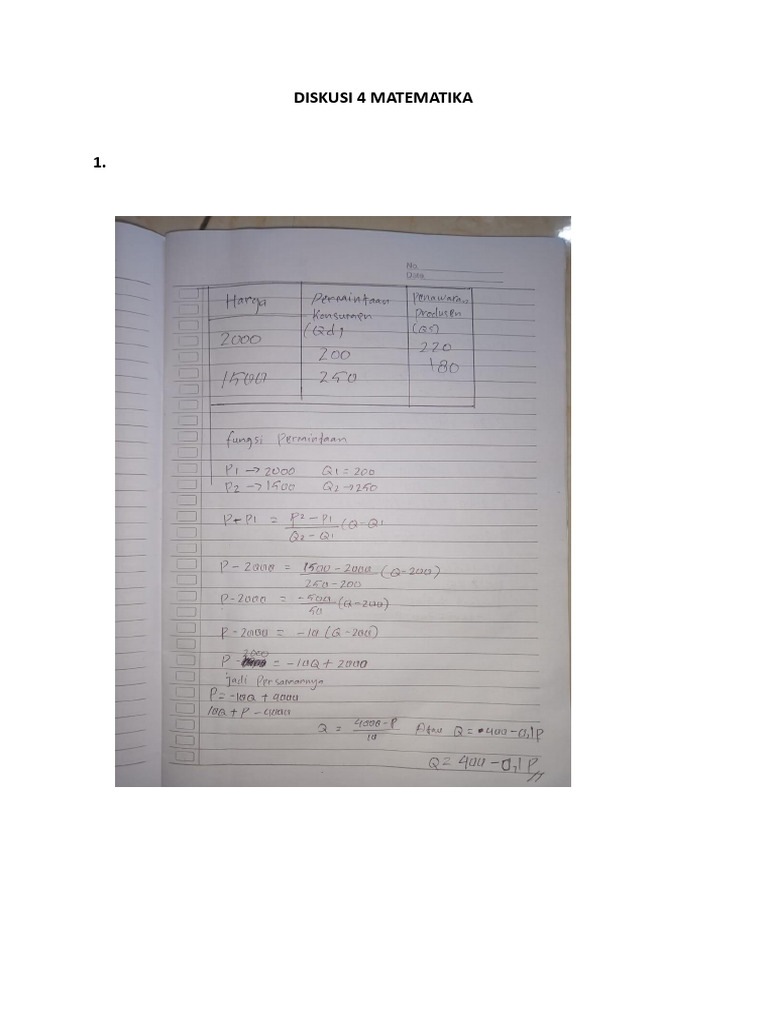 DISKUSI 4 MATEMATIKA
1.
No
Date
Harga Permintaan Penawaran
Konsumen Produsen
(Qd) (Qs)
2000 200 220
1500 250 180
fungsi permintaan
P1 → 2000 Q1 = 200
P2 → 1500 Q2 → 250
P - P1 = P2 - P1 (Q - Q1
Q2 - Q1
P - 2000 = 1500 - 2000 (Q - 200)
250 - 200
P - 2000 = -500 (Q - 200)
50
P - 2000 = -10 (Q - 200)
P - 2000 = -10Q + 2000
jadi Persamannya
P = -10Q + 4000
10Q + P - 4000
Q = 4000 - P Atau Q = 400 - 0,1P
10
Q = 400 - 0,1 P //